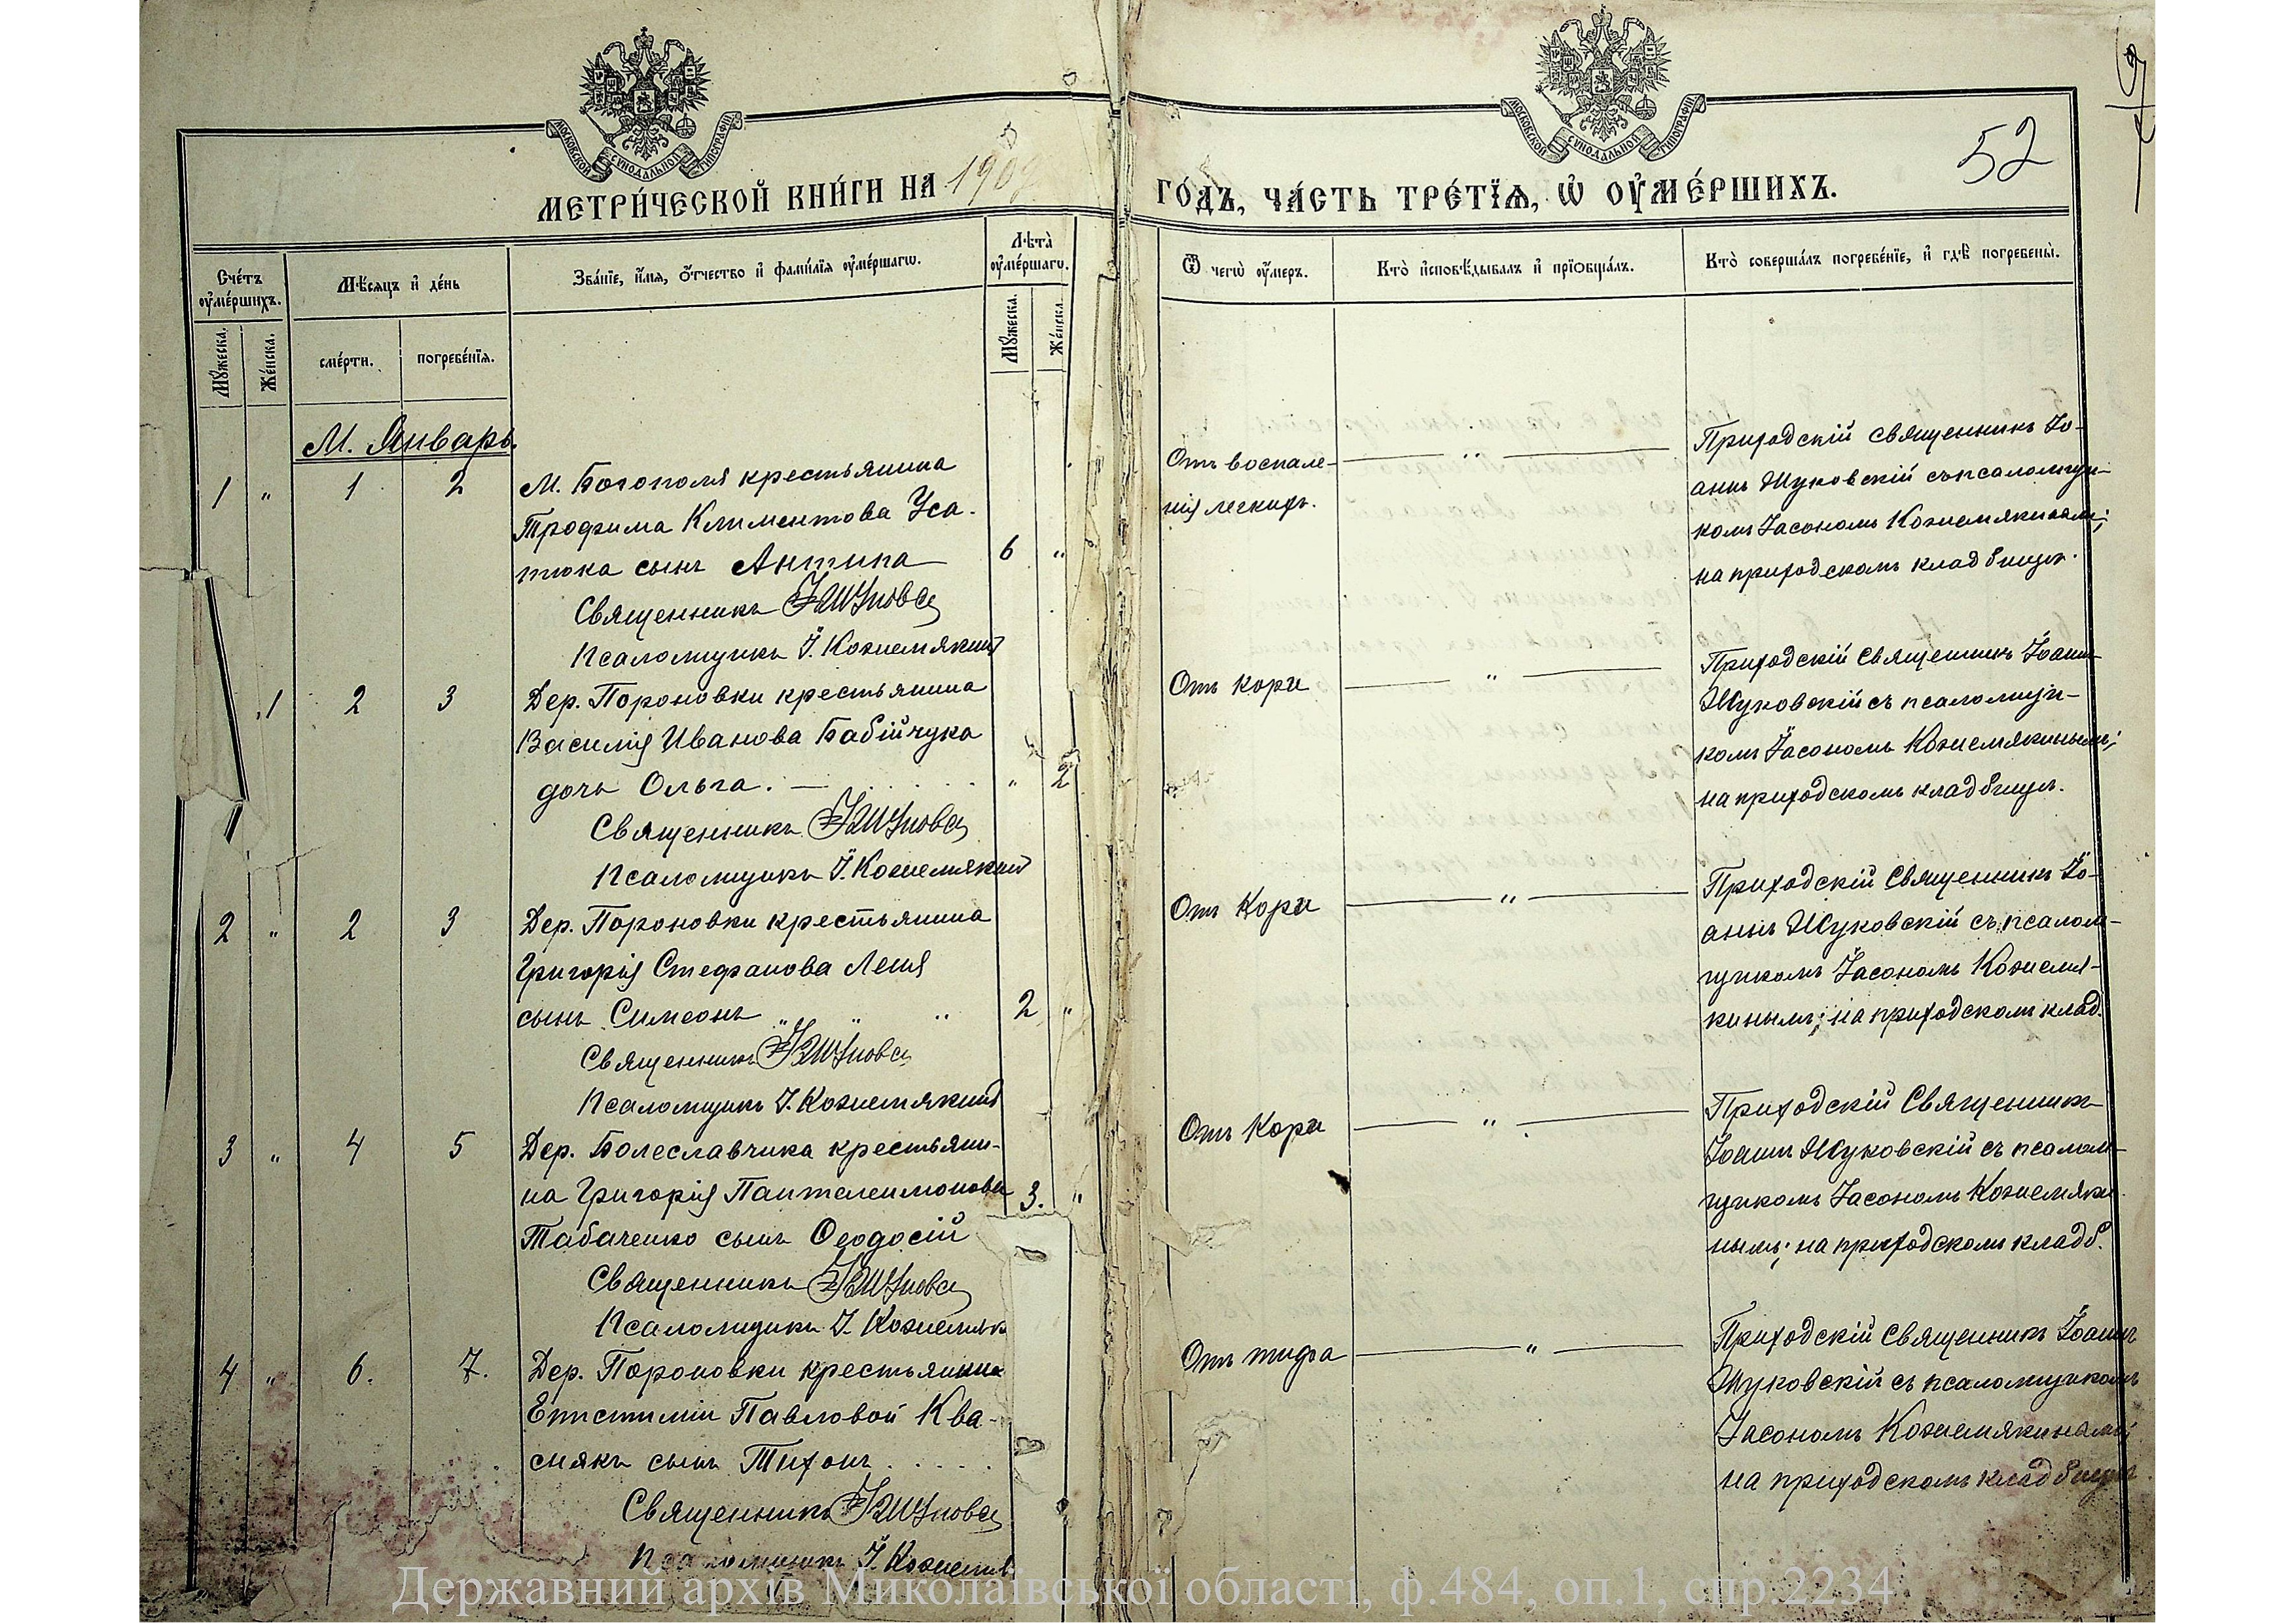 МОСКОВСКОЙ СѴНОДАЛЬНОЙ ТИПОГРАФІИ
МОСКОВСКОЙ СѴНОДАЛЬНОЙ ТИПОГРАФІИ
52
МЕТРИ́ЧЕСКОЙ КНИ́ГИ НА 190
ГО́ДЪ, ЧА́СТЬ ТРЕ́ТЇѦ, Ѡ҆ ОУ҆МЕ́РШИХЪ.
Сче́тъ оу҆ме́ршихъ.
Мѣ́сѧцъ и҆ де́нь
Зва́нїе, и҆́мѧ, ѻ҆́тчество и҆ фами́лїѧ оу҆ме́ршагѡ.
Лѣ́та̀ оу҆ме́ршагѡ.
Ѿ чегѡ̀ оу҆́меръ.
Кто̀ и҆сповѣ́дывалъ и҆ прїѻбща́лъ.
Кто̀ соверша́лъ погребе́нїе, и҆ гдѣ̀ погребены̀.
Мꙋ́жеска.
Же́нска.
сме́рти.
погребе́нїѧ.
Мꙋ́жеска.
Же́нска.
М. Январь.
1 " 1 2 М. Богополя крестьянина
Трофима Климентова Уса-
тюка сынъ Антипа 6 "
Священникъ
Псаломщикъ І. Кожемякинъ
От воспале- "
нія легкихъ.
Приходскій священникъ Іо-
аннъ Жуковскій съ псаломщи-
комъ Іасономъ Кожемякинымъ;
на приходскомъ кладбищѣ.
" 1 2 3 Дер. Пороновки крестьянина
Василія Иванова Бабійчука
дочь Ольга. " 2
Священникъ
Псаломщикъ І. Кожемякинъ
Отъ кори "
Приходскій священникъ Іоаннъ
Жуковскій съ псаломщи-
комъ Іасономъ Кожемякинымъ;
на приходскомъ кладбищѣ.
2 " 2 3 Дер. Пороновки крестьянина
Григорія Стефанова Леня
сынъ Симеонъ 2 "
Священникъ
Псаломщикъ І. Кожемякинъ
Отъ Кори "
Приходскій священникъ Іо-
аннъ Жуковскій съ псалом-
щикомъ Іасономъ Кожемя-
кинымъ; на приходскомъ клад.
3 " 4 5 Дер. Болеславчика крестьяни-
на Григорія Пантелеимонова 3. "
Табаченко сынъ Ѳеодосій
Священникъ
Псаломщикъ І. Кожемяк
Отъ Кори "
Приходскій Священникъ
Іоаннъ Жуковскій съ псалом-
щикомъ Іасономъ Кожемяки
нымъ; на приходскомъ кладб.
4 " 6. 7. Дер. Пороновки крестьянки
Епистиміи Павловой Ква-
снякъ сынъ Тихонъ
Священникъ
Псаломщикъ І. Кожемяк
Отъ тифа "
Приходскій священникъ Іоаннъ
Жуковскій съ псаломщикомъ
Іасономъ Кожемякинымъ;
на приходскомъ кладбищѣ
Державний архів Миколаївської області, ф.484, оп.1, спр.2234